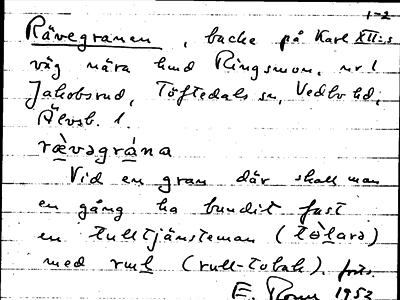 1-2
Rävegranen, backe på Karl XII:s
väg nära lmd Ringsmon, nr 1
Jakobsrud, Töftedals sn, Vedbo hd,
Älvsb. l.
rǣ̀vəgrána
Vid en gran där skall man
en gång ha bundit fast
en tulltjänsteman (tò̤larə)
med rul (rull-tobak). forts.
E. 1952